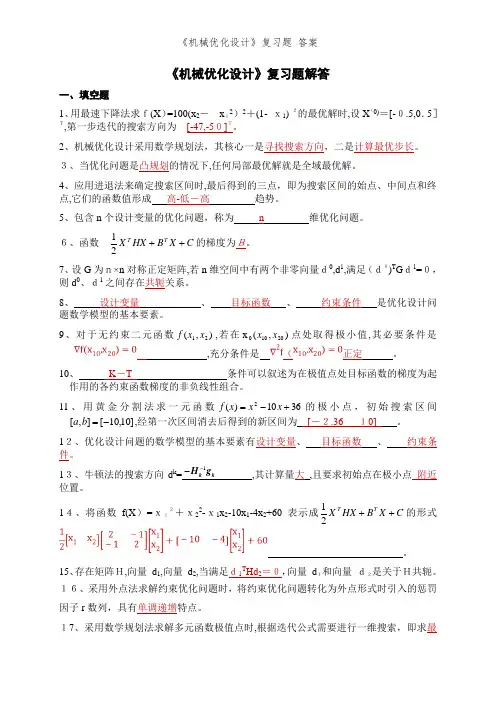 《机械优化设计》复习题 答案
《机械优化设计》复习题解答
一、填空题
1、用最速下降法求f(X)=100(x₂－ x₁²)²＋(1- x₁)²的最优解时,设X⁽⁰⁾＝[-0.5,0.5]
ᵀ,第一步迭代的搜索方向为 [-47,-50]ᵀ。
2、机械优化设计采用数学规划法，其核心一是寻找搜索方向，二是计算最优步长。
3、当优化问题是凸规划的情况下,任何局部最优解就是全域最优解。
4、应用进退法来确定搜索区间时,最后得到的三点，即为搜索区间的始点、中间点和终
点,它们的函数值形成 高-低－高 趋势。
5、包含n个设计变量的优化问题，称为 n 维优化问题。
6、函数 1/2 XᵀHX + BᵀX + C 的梯度为B。
7、设G为n×n对称正定矩阵,若n维空间中有两个非零向量d⁰,d¹,满足(d⁰)ᵀGd¹=0，
则d⁰、d¹之间存在共轭关系。
8、 设计变量 、 目标函数 、 约束条件 是优化设计问
题数学模型的基本要素。
9、对于无约束二元函数 f(x₁,x₂) ,若在 x₀(x₁₀,x₂₀) 点处取得极小值,其必要条件是
∇f(x₁₀,x₂₀) = 0 ,充分条件是 ∇²f（x₁₀,x₂₀) = 0正定 。
10、 K－T 条件可以叙述为在极值点处目标函数的梯度为起
作用的各约束函数梯度的非负线性组合。
11、用黄金分割法求一元函数 f(x) = x² − 10x + 36 的极小点，初始搜索区间
[a,b] = [−10,10],经第一次区间消去后得到的新区间为 [-2.36 10] 。
12、优化设计问题的数学模型的基本要素有设计变量、 目标函数 、 约束条
件。
13、牛顿法的搜索方向dᵏ= −Hₖ⁻¹gₖ ,其计算量大 ,且要求初始点在极小点 附近
位置。
14、将函数f(X)＝x₁²＋x₂²-x₁x₂-10x₁-4x₂+60表示成 1/2 XᵀHX + BᵀX + C 的形式
1/2 [x₁ x₂] [2 −1; −1 2] [x₁; x₂] + [−10 −4] [x₁; x₂] + 60 。
15、存在矩阵H,向量 d₁,向量 d₂,当满足d₁ᵀHd₂＝0，向量 d₁和向量 d₂是关于H共轭。
16、采用外点法求解约束优化问题时，将约束优化问题转化为外点形式时引入的惩罚
因子r数列，具有单调递增特点。
17、采用数学规划法求解多元函数极值点时,根据迭代公式需要进行一维搜索，即求最